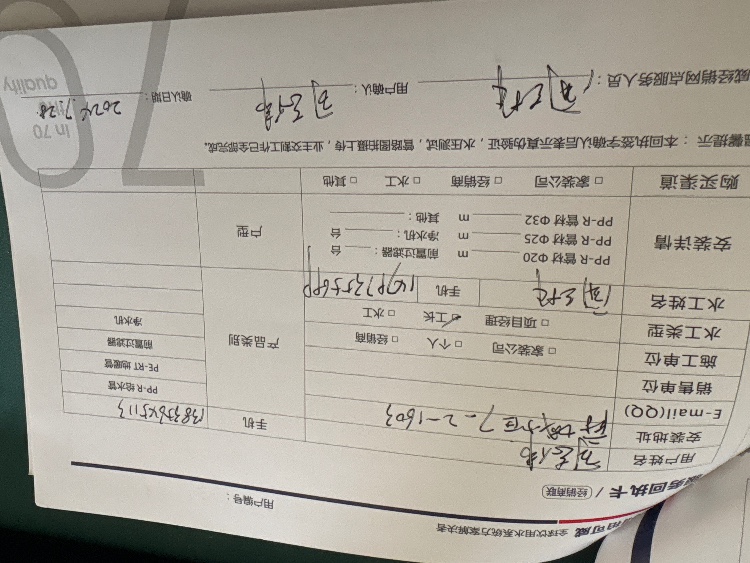 全球饮用水系统方案解决者
服务回执卡 / 经销商联
用户编号：
用户姓名
手机 13835645113
安装地址 7-2-1603
E-mail(QQ)
PP-R 给水管
销售单位
PE-RT 地暖管
施工单位 □ 家装公司 □ 个人 □ 经销商
产品类别
前置过滤器
水工类型 □ 项目经理 □ 工长 □ 水工
净水机
水工姓名 周三桂 手机
安装详情
PP-R 管材 Φ20 m 前置过滤器： 台
PP-R 管材 Φ25 m 净水机： 台
PP-R 管材 Φ32 m 其他：
户型
购买渠道 □ 家装公司 □ 经销商 □ 水工 □ 其他
温馨提示：本回执签字确认后表示真伪验证，水压测试，管路图拍摄上传，业主交割工作已全部完成。
威经销网点服务人员： 周三桂 用户确认： 确认日期： 2024.7.28
in 70
quality
70